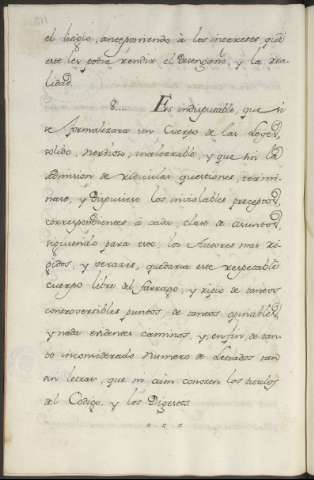 el litigio, anteponiendo à los intereses, que
este les podia rendir el Desengaño, y la rea-
lidad.
8. Es indisputable, que si
se formalizara un Cuerpo de las Leyes,
solido, nerbioso, inalterable, y que sin la
admision de ridiculas questiones, termi-
nase, y dispusiese los inviolables preceptos,
correspondientes à cada clase de asuntos,
siguiendo para esto, los Autores mas ri-
gidos, y veraces, quedaria este respetable
cuerpo libre del farrago, y ripio de tantos
controversibles puntos, de tantos opinables,
y nada evidentes caminos, y, en fin, de tan-
to inconsiderado numero de Letrados tan
sin letras, que ni aun conocen los titulos
del Codigo, y los Digestos.